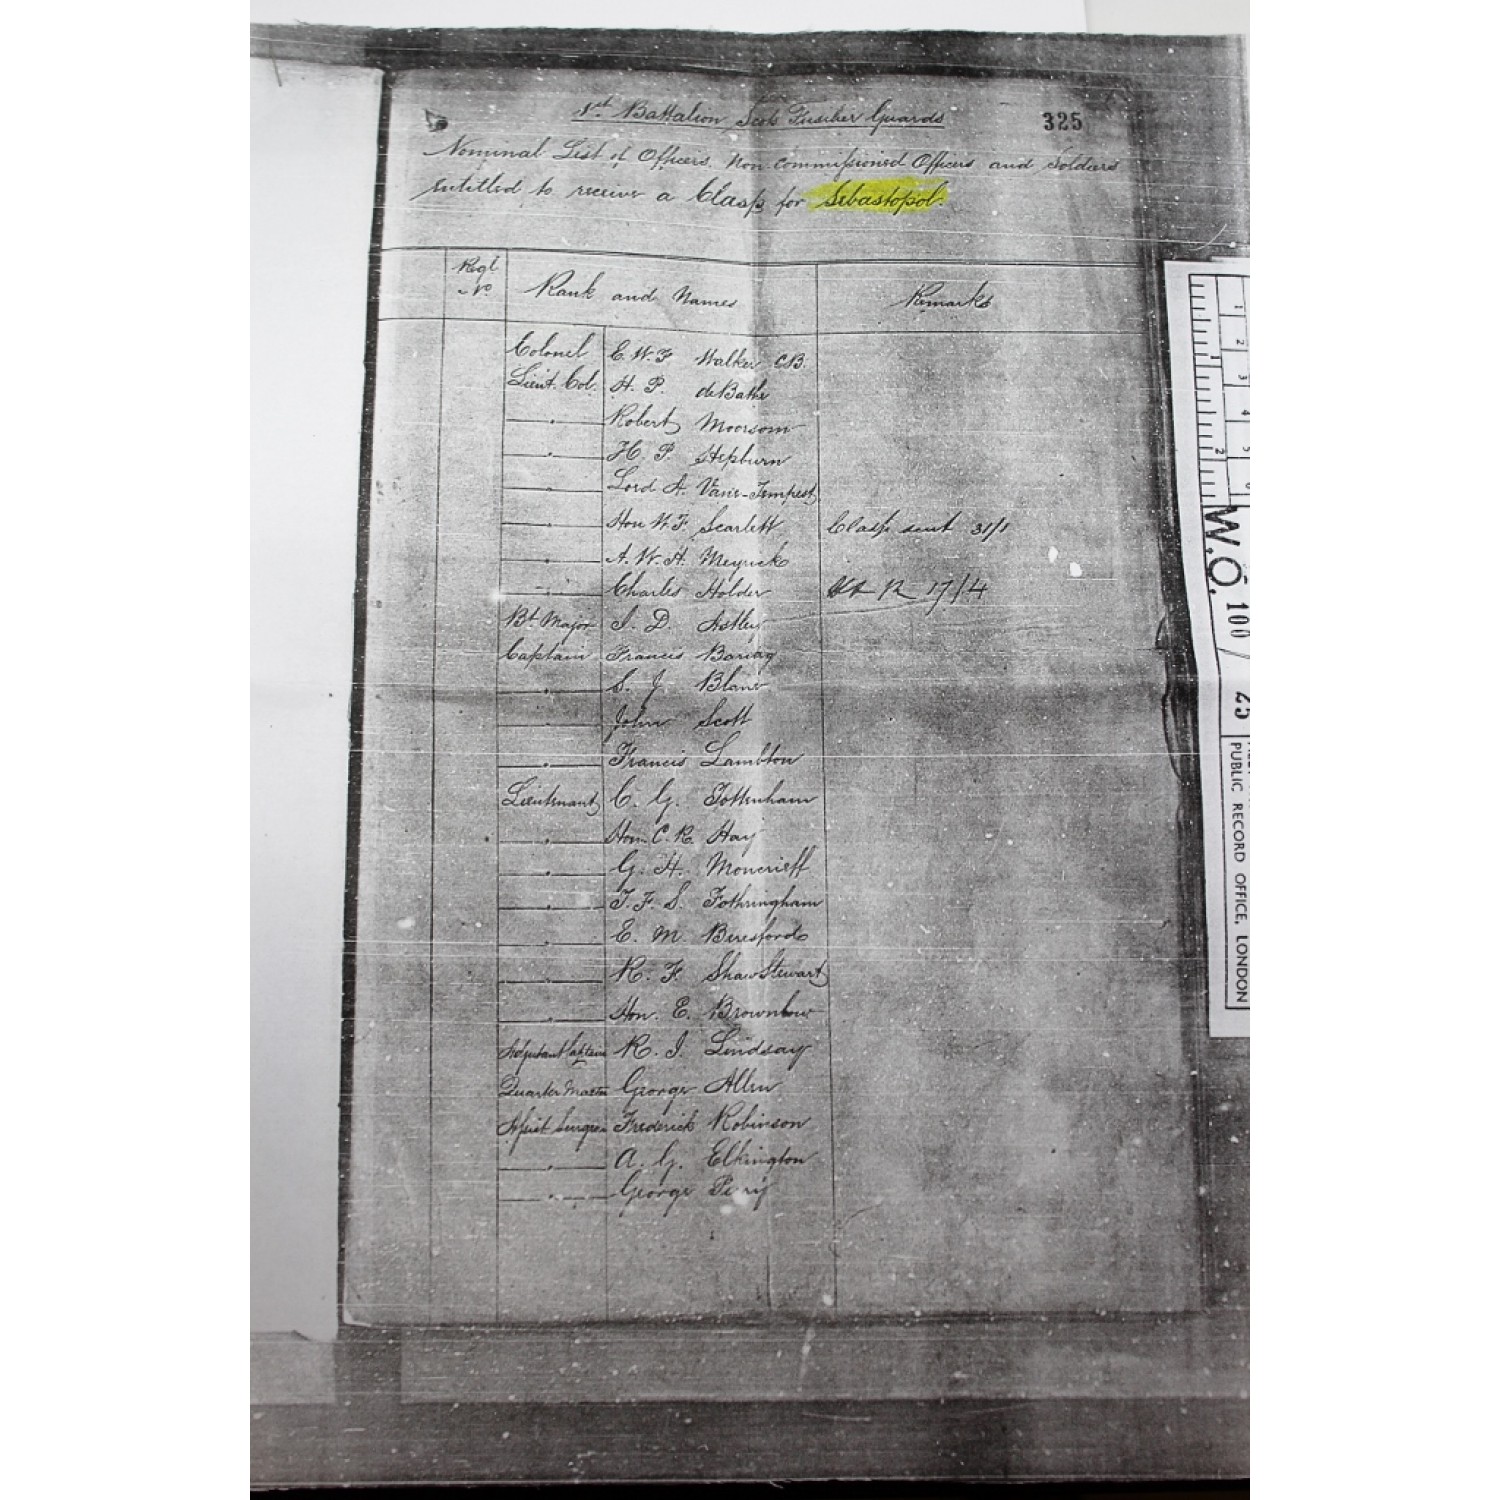 1st Battalion Scots Fusilier Guards
325
Nominal List of Officers, Non-Commissioned Officers and Soldiers
entitled to receive a Clasp for Sebastopol.
Regl No. Rank and Names Remarks
Colonel E. W. F. Walker CB.
Lieut. Col. H. P. deBathe
— " — Robert Moorsom
— " — H. P. Hepburn
— " — Lord A. Vane-Tempest
— " — Hon W. F. Scarlett Clasp sent 31/1
— " — A. W. A. Meyrick
— " — Charles Holder 17/4
Bt. Major J. D. Astley
Captain Francis Baring
— " — S. J. Blane
— " — John Scott
— " — Francis Lambton
Lieutenant C. G. Tottenham
— " — Hon. C. R. Hay
— " — G. H. Moncrieff
— " — T. F. S. Fothringham
— " — E. M. Beresford
— " — R. F. Shaw Stewart
— " — Hon. E. Brownlow
Adjutant Captain R. J. Lindsay
Quarter Master George Allen
Assist Surgeon Frederick Robinson
— " — A. G. Elkington
— " — George Perry
1 2 3 4 5 6
1 2
W.O. 100/ 25
PUBLIC RECORD OFFICE, LONDON